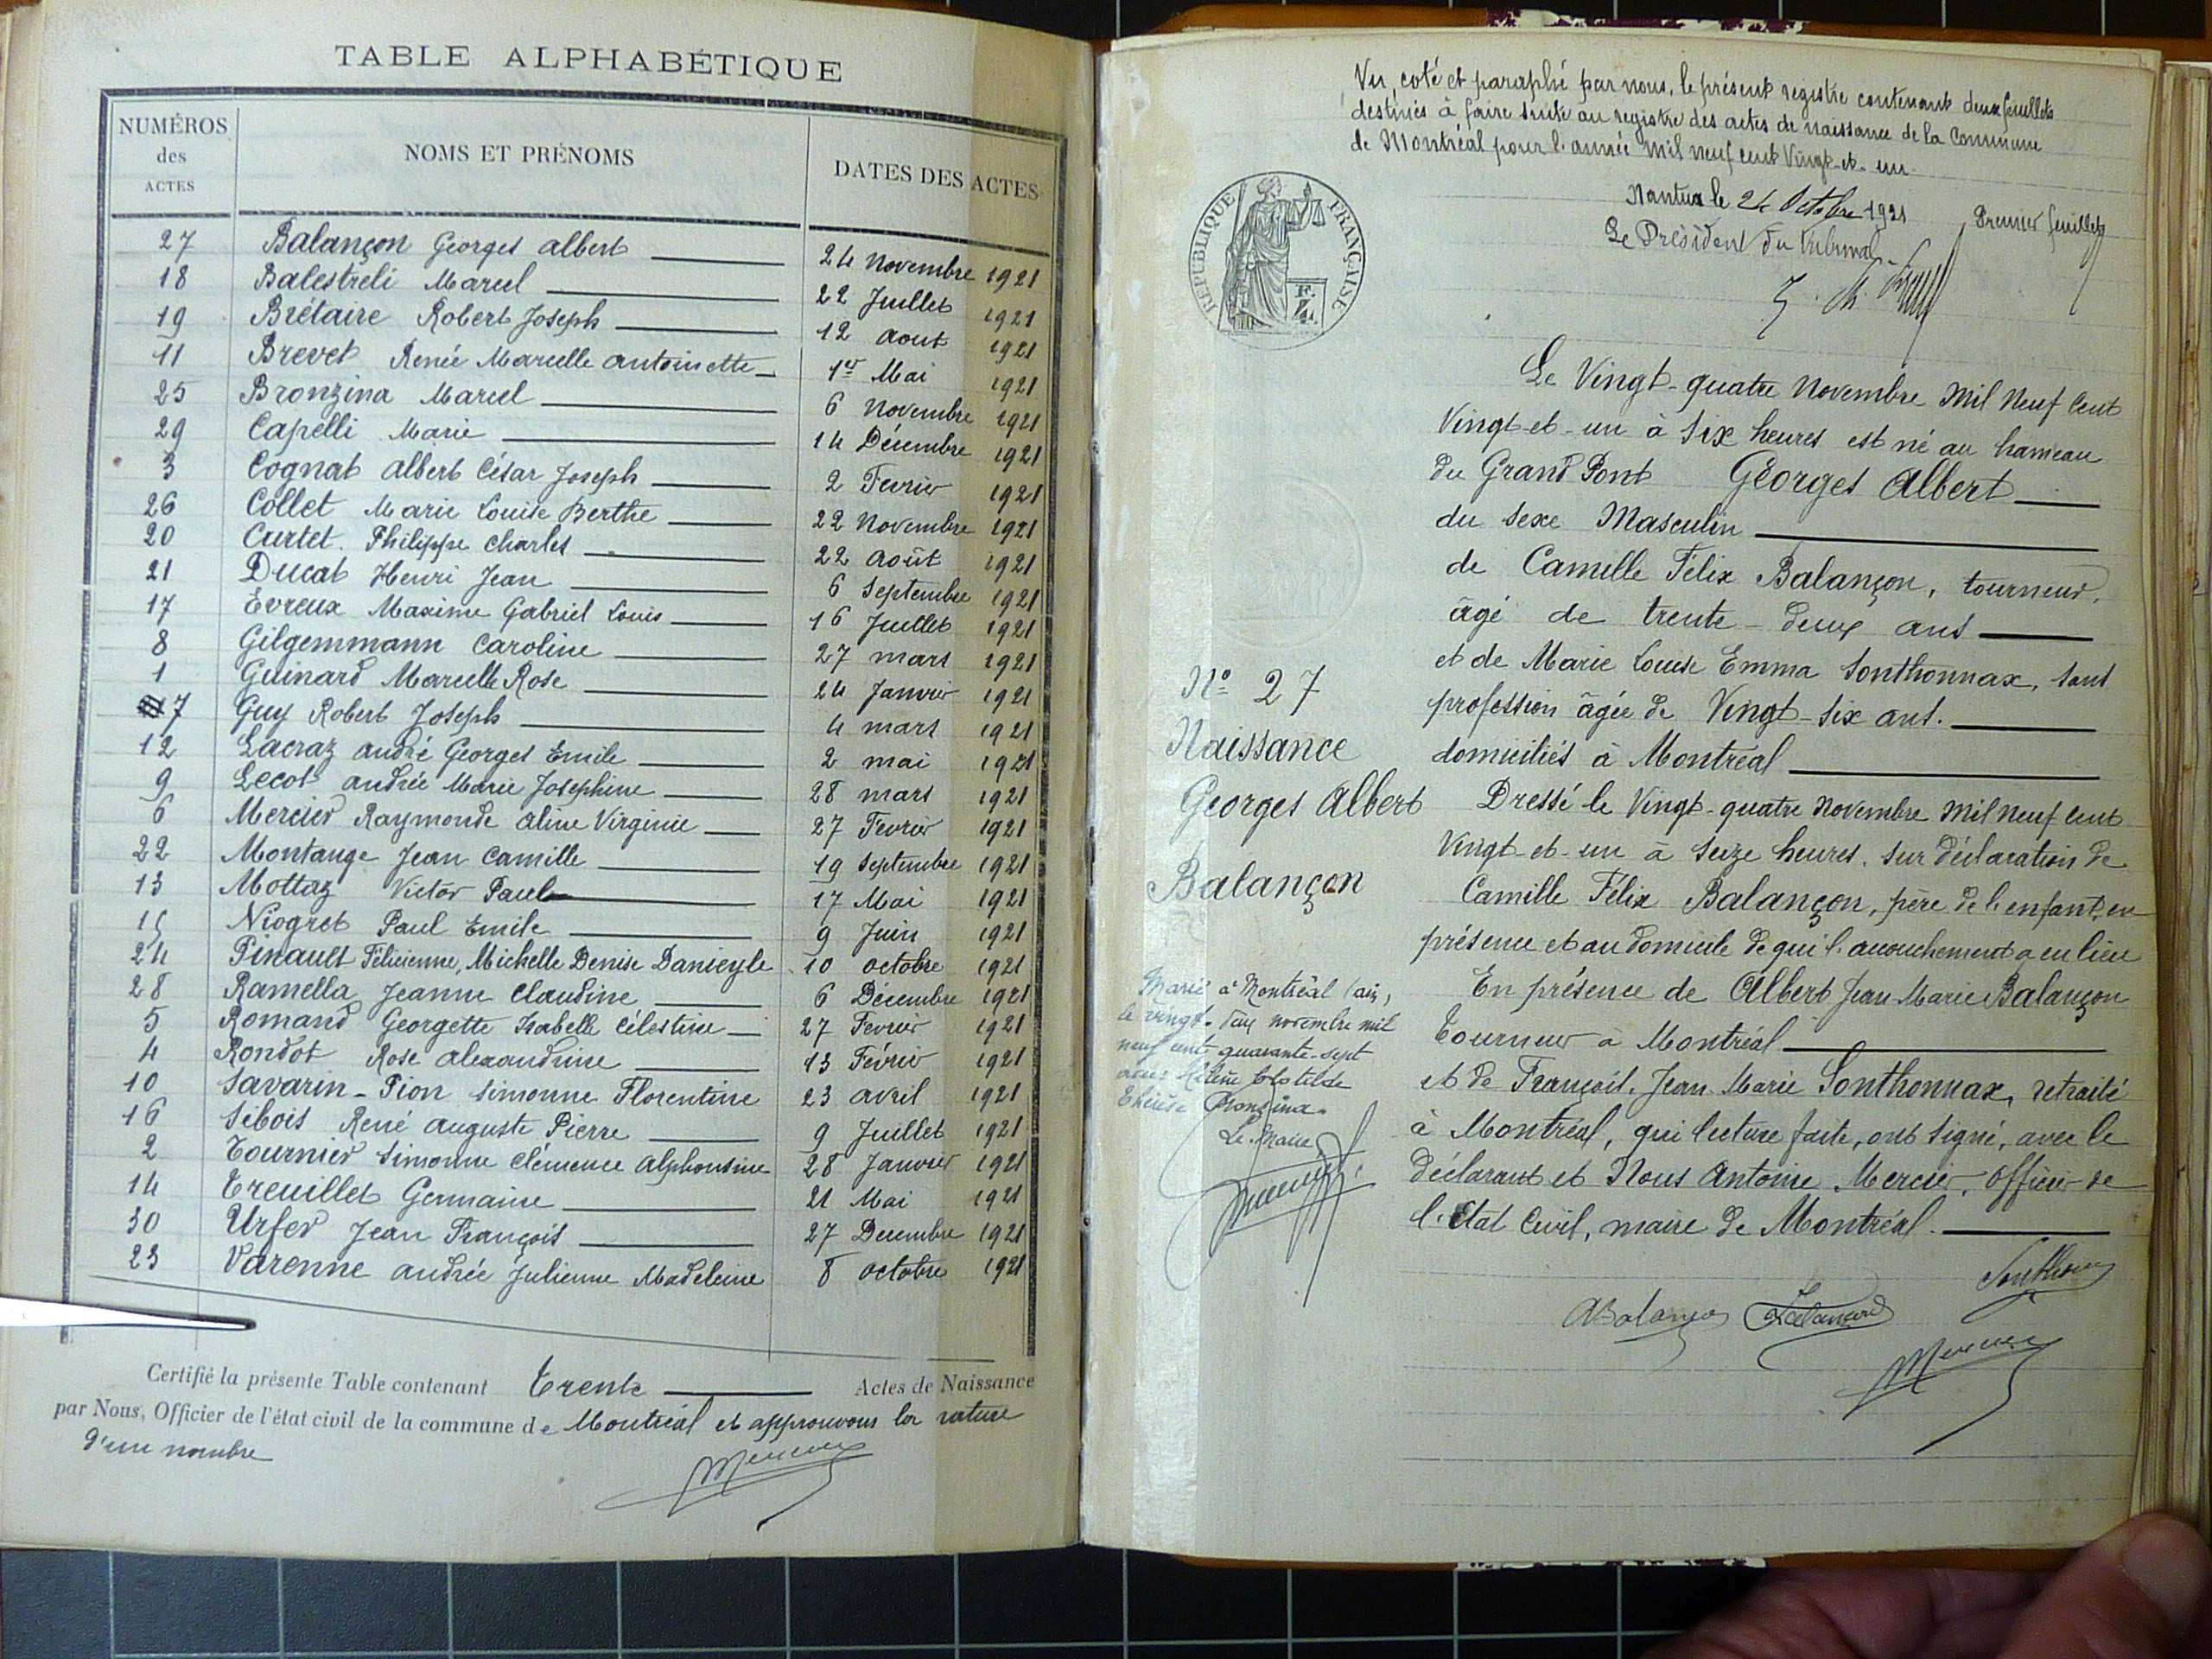 TABLE ALPHABÉTIQUE
NUMÉROS des ACTES NOMS ET PRÉNOMS DATES DES ACTES
27 Balançon Georges Albert 24 Novembre 1921
18 Balestreli Marcel 22 Juillet 1921
19 Brétaire Robert Joseph 12 Aout 1921
11 Brevet Renée Marcelle Antoinette 1er Mai 1921
25 Bronzina Marcel 6 Novembre 1921
29 Capelli Marie 14 Décembre 1921
3 Cognat Albert César Joseph 2 Fevrier 1921
26 Collet Marie Louise Berthe 22 Novembre 1921
20 Curtet Philippe Charles 22 Août 1921
21 Ducat Henri Jean 6 Septembre 1921
17 Evreux Maxime Gabriel Louis 16 Juillet 1921
8 Gilgemmann Caroline 27 mars 1921
1 Guinard Marcelle Rose 24 Janvier 1921
7 Guy Robert Joseph 4 mars 1921
12 Lacraz André Georges Emile 2 mai 1921
9 Lecot Andrée Marie Josephine 28 mars 1921
6 Mercier Raymonde Aline Virginie 27 Fevrier 1921
22 Montange Jean Camille 19 Septembre 1921
13 Mottaz Victor Paul 17 Mai 1921
15 Niogret Paul Emile 9 Juin 1921
24 Pinault Félicienne, Michelle Denise Danieyle 10 octobre 1921
28 Ramella Jeanne Claudine 6 Décembre 1921
5 Romand Georgette Isabelle Célestine 27 Fevrier 1921
4 Rondot Rose Alexandrine 13 Février 1921
10 Savarin-Pion Simonne Florentine 23 avril 1921
16 Sébois René Auguste Pierre 9 Juillet 1921
2 Tournier Simonne Clémence Alphonsine 28 Janvier 1921
14 Treuillet Germaine 21 Mai 1921
30 Urfer Jean François 27 Decembre 1921
23 Varenne Andrée Julienne Madeleine 8 octobre 1921
Certifié la présente Table contenant Trente Actes de Naissance
par Nous, Officier de l'état civil de la commune de Montréal et approuvons la rature
d'un nombre
Vu, coté et paraphé par nous, le présent registre contenant deux feuillets
destinés à faire suite au registre des actes de naissance de la Commune
de Montréal pour l'année mil neuf cent Vingt-et-un.
Nantua le 24 Octobre 1921
Premier feuillet
Le Président du Tribunal
RÉPUBLIQUE FRANÇAISE
Le Vingt-quatre Novembre Mil Neuf Cent
Vingt-et-un à Six heures est né au hameau
du Grand Pont Georges Albert
du sexe Masculin
de Camille Félix Balançon, tourneur,
âgé de trente-deux ans
et de Marie Louise Emma Sonthonnax, sans
profession âgée de Vingt-six ans.
domiciliés à Montréal
N° 27
Naissance
Georges Albert
Balançon
Dressé le Vingt-quatre Novembre Mil Neuf Cent
Vingt-et-un à Seize heures. Sur déclaration de
Camille Félix Balançon, père de l'enfant, en
présence et au domicile de qui l'accouchement a eu lieu
En présence de Albert Jean Marie Balançon
tourneur à Montréal
et de François Jean Marie Sonthonnax, retraité
à Montréal, qui lecture faite, ont signé, avec le
déclarant et Nous Antoine Mercier, Officier de
l'Etat Civil, maire de Montréal.
Marié à Montréal (Ain)
le vingt-deux novembre mil
neuf cent quarante-sept
avec Hélène Clotilde
Thérèse Bronzina.
Le Maire
ABalançon
Mercier